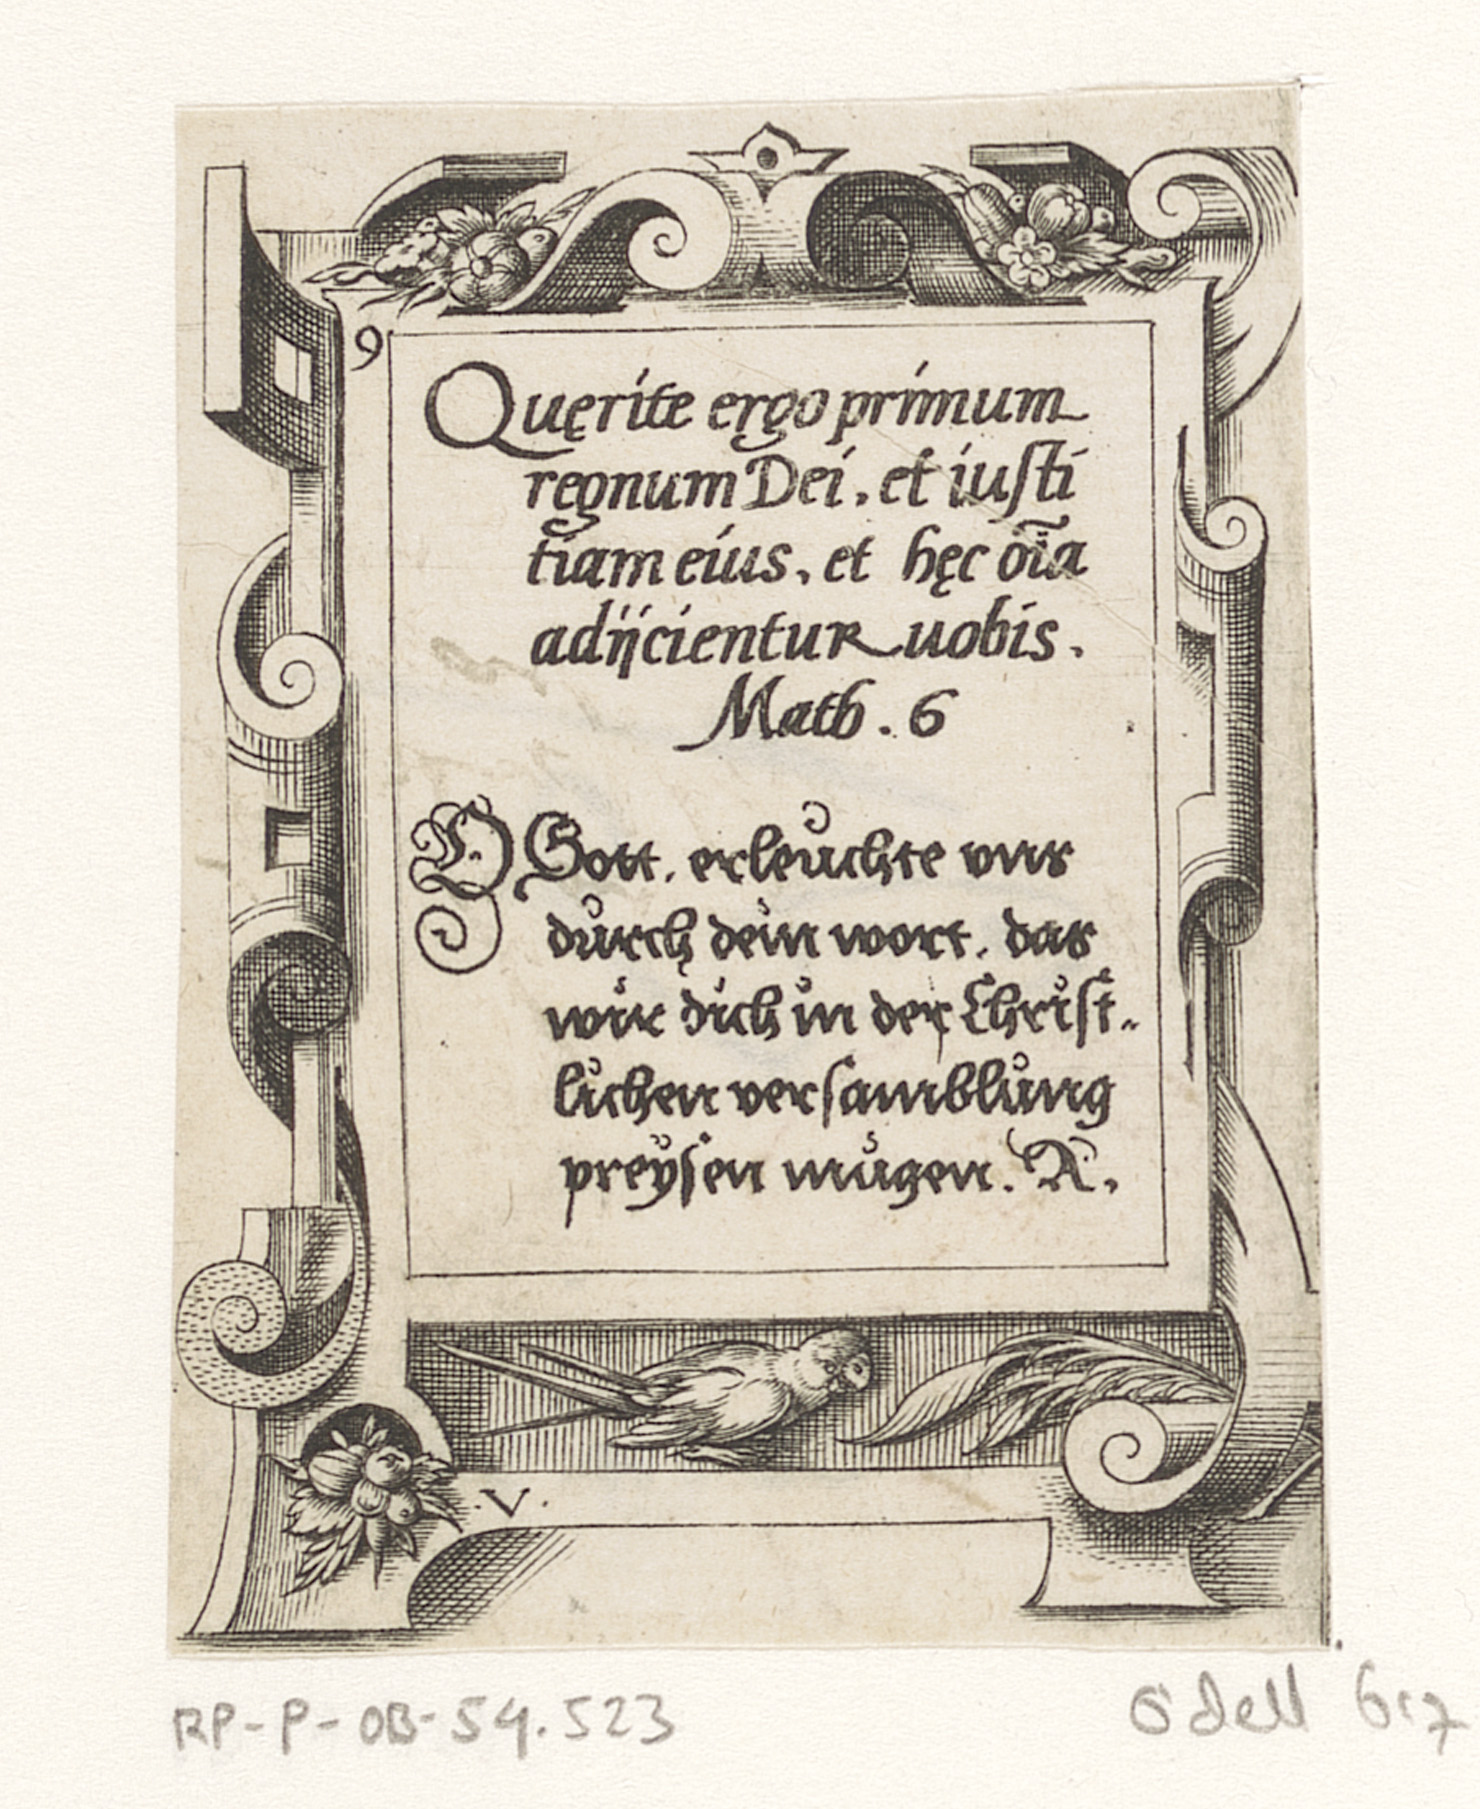 9
Quęrite ergo primum
regnum Dei, et iusti
tiam eius, et hęc oĩa
adijcientur uobis.
Math. 6
O Gott, erleuchte vns
durch dein wort, das
wir dich in der Christ-
lichen versamblung
preysen mügen. A.
.V.
RP-P-OB-54.523